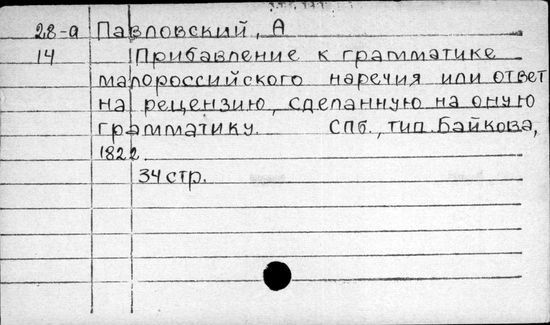 28-а Павловский, А
14 Прибавление к грамматике
малороссийского наречия или ответ
на рецензию, сделанную на оную
грамматику. Спб., тип. Байкова,
1822
34 стр.